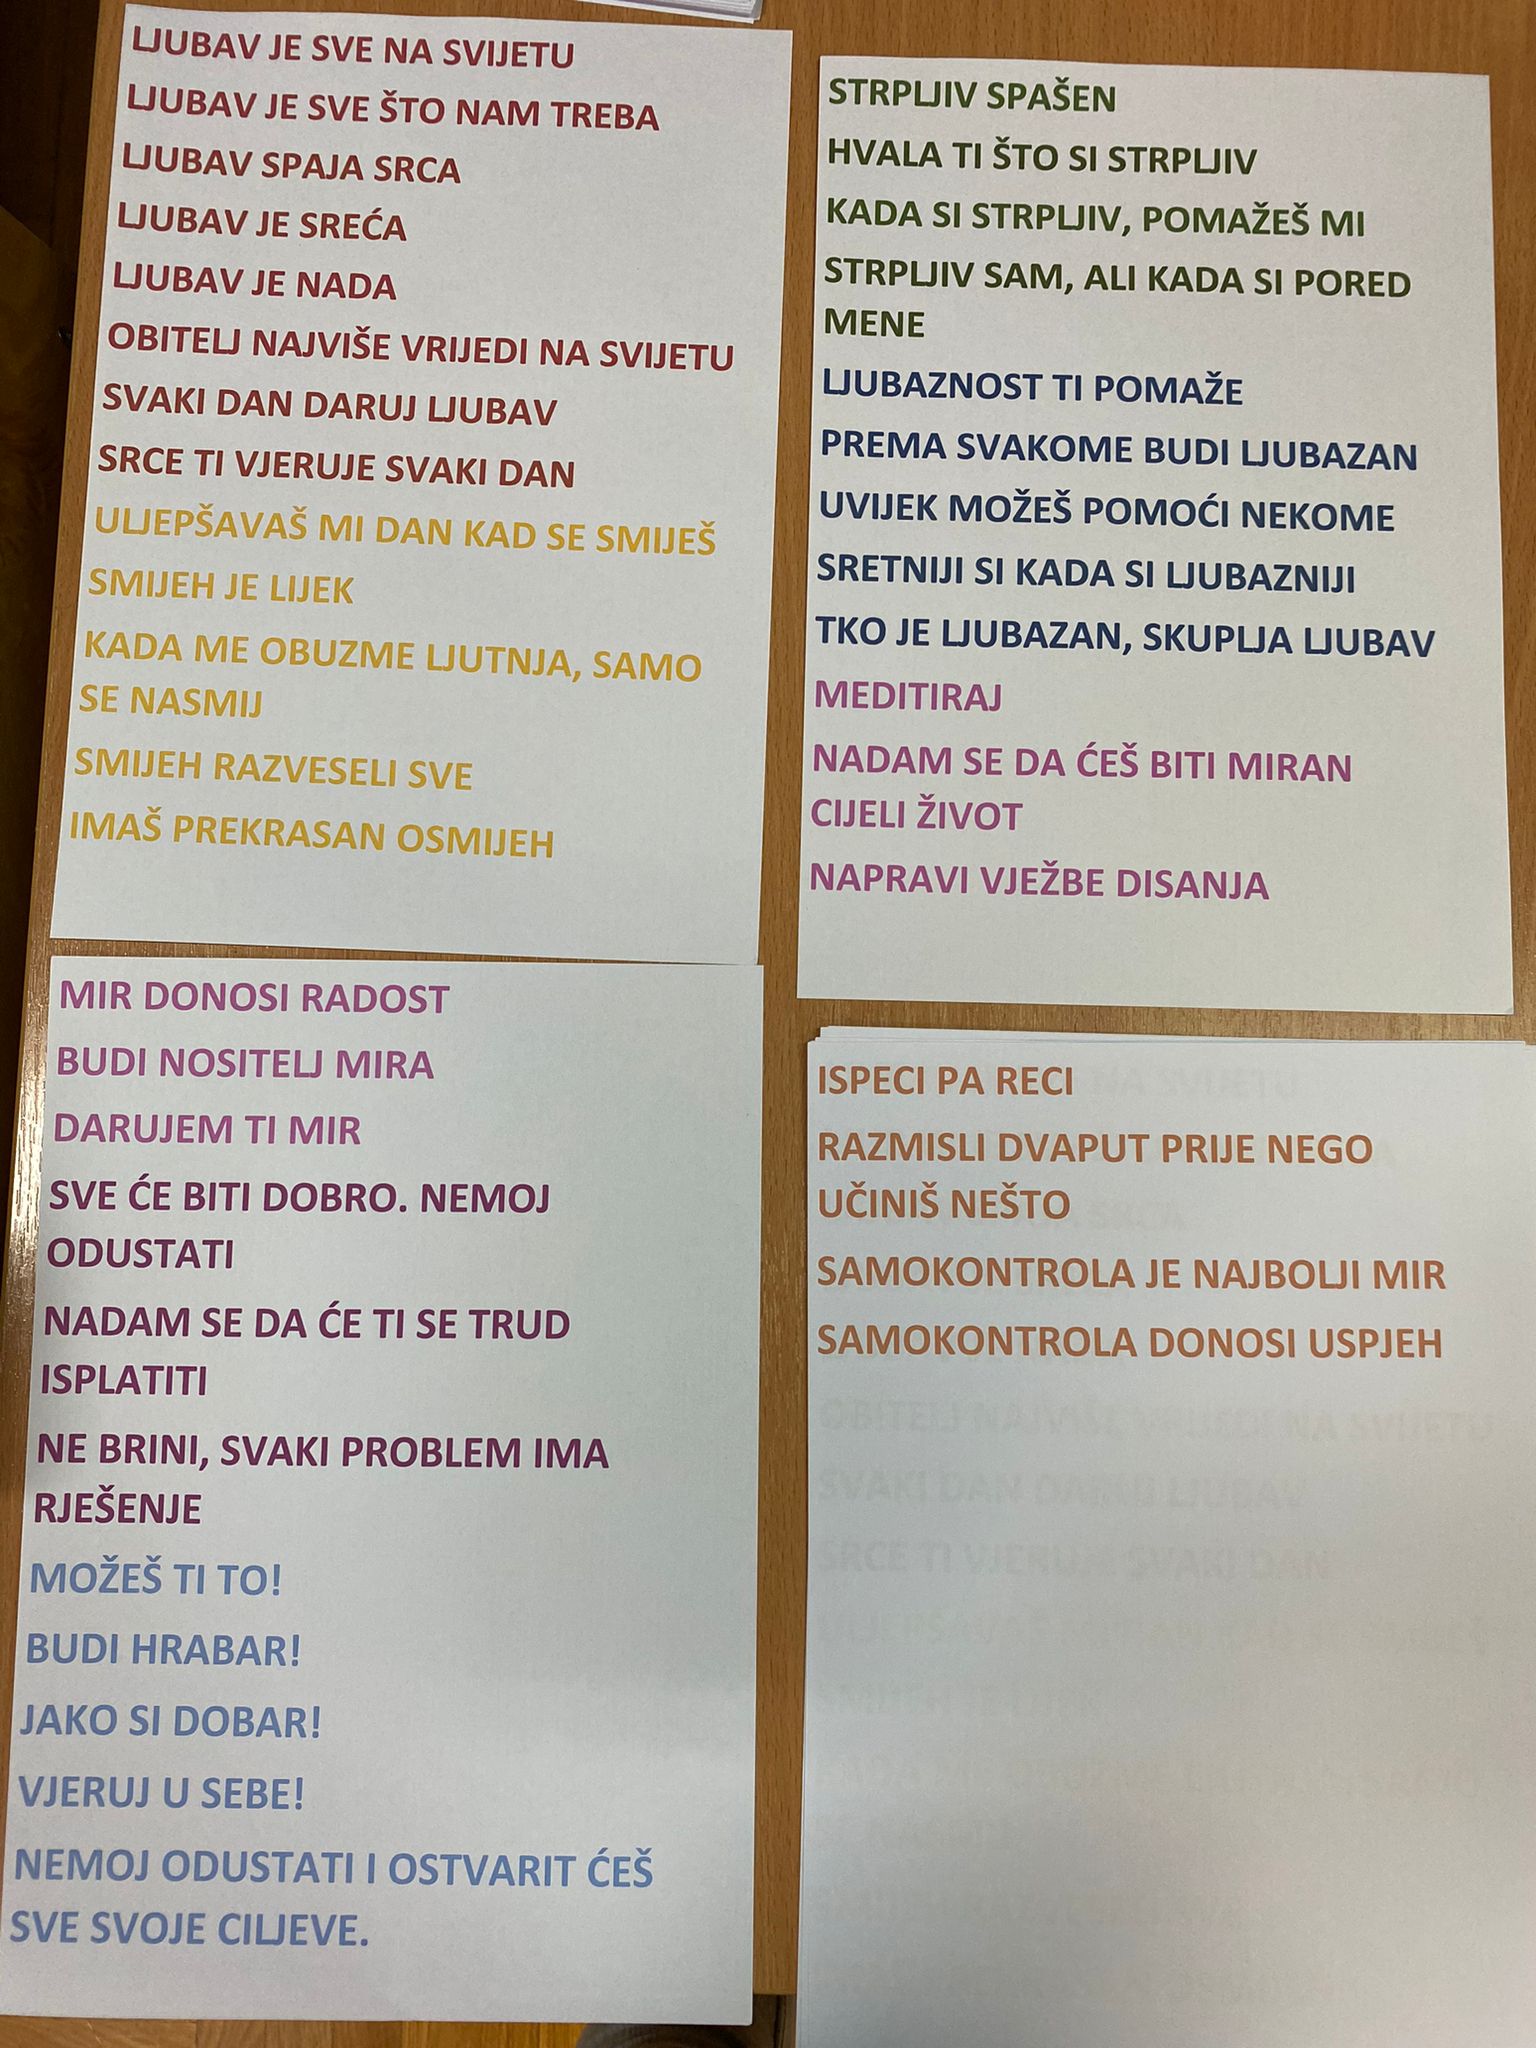 LJUBAV JE SVE NA SVIJETU
LJUBAV JE SVE ŠTO NAM TREBA
LJUBAV SPAJA SRCA
LJUBAV JE SREĆA
LJUBAV JE NADA
OBITELJ NAJVIŠE VRIJEDI NA SVIJETU
SVAKI DAN DARUJ LJUBAV
SRCE TI VJERUJE SVAKI DAN
ULJEPŠAVAŠ MI DAN KAD SE SMIJEŠ
SMIJEH JE LIJEK
KADA ME OBUZME LJUTNJA, SAMO
SE NASMIJ
SMIJEH RAZVESELI SVE
IMAŠ PREKRASAN OSMIJEH
STRPLJIV SPAŠEN
HVALA TI ŠTO SI STRPLJIV
KADA SI STRPLJIV, POMAŽEŠ MI
STRPLJIV SAM, ALI KADA SI PORED
MENE
LJUBAZNOST TI POMAŽE
PREMA SVAKOME BUDI LJUBAZAN
UVIJEK MOŽEŠ POMOĆI NEKOME
SRETNIJI SI KADA SI LJUBAZNIJI
TKO JE LJUBAZAN, SKUPLJA LJUBAV
MEDITIRAJ
NADAM SE DA ĆEŠ BITI MIRAN
CIJELI ŽIVOT
NAPRAVI VJEŽBE DISANJA
MIR DONOSI RADOST
BUDI NOSITELJ MIRA
DARUJEM TI MIR
SVE ĆE BITI DOBRO. NEMOJ
ODUSTATI
NADAM SE DA ĆE TI SE TRUD
ISPLATITI
NE BRINI, SVAKI PROBLEM IMA
RJEŠENJE
MOŽEŠ TI TO!
BUDI HRABAR!
JAKO SI DOBAR!
VJERUJ U SEBE!
NEMOJ ODUSTATI I OSTVARIT ĆEŠ
SVE SVOJE CILJEVE.
ISPECI PA RECI
RAZMISLI DVAPUT PRIJE NEGO
UČINIŠ NEŠTO
SAMOKONTROLA JE NAJBOLJI MIR
SAMOKONTROLA DONOSI USPJEH
OBITELJ NAJVIŠE VRIJEDI NA SVIJETU
SVAKI DAN DARUJ LJUBAV
SRCE TI VJERUJE SVAKI DAN